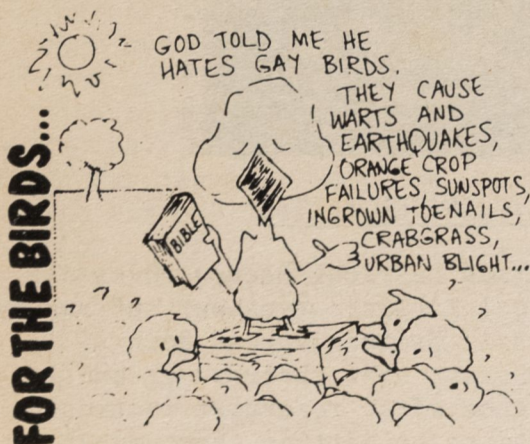 FOR THE BIRDS...
GOD TOLD ME HE
HATES GAY BIRDS.
THEY CAUSE
WARTS AND
EARTHQUAKES,
ORANGE CROP
FAILURES, SUNSPOTS,
INGROWN TOENAILS,
CRABGRASS,
URBAN BLIGHT...
BIBLE